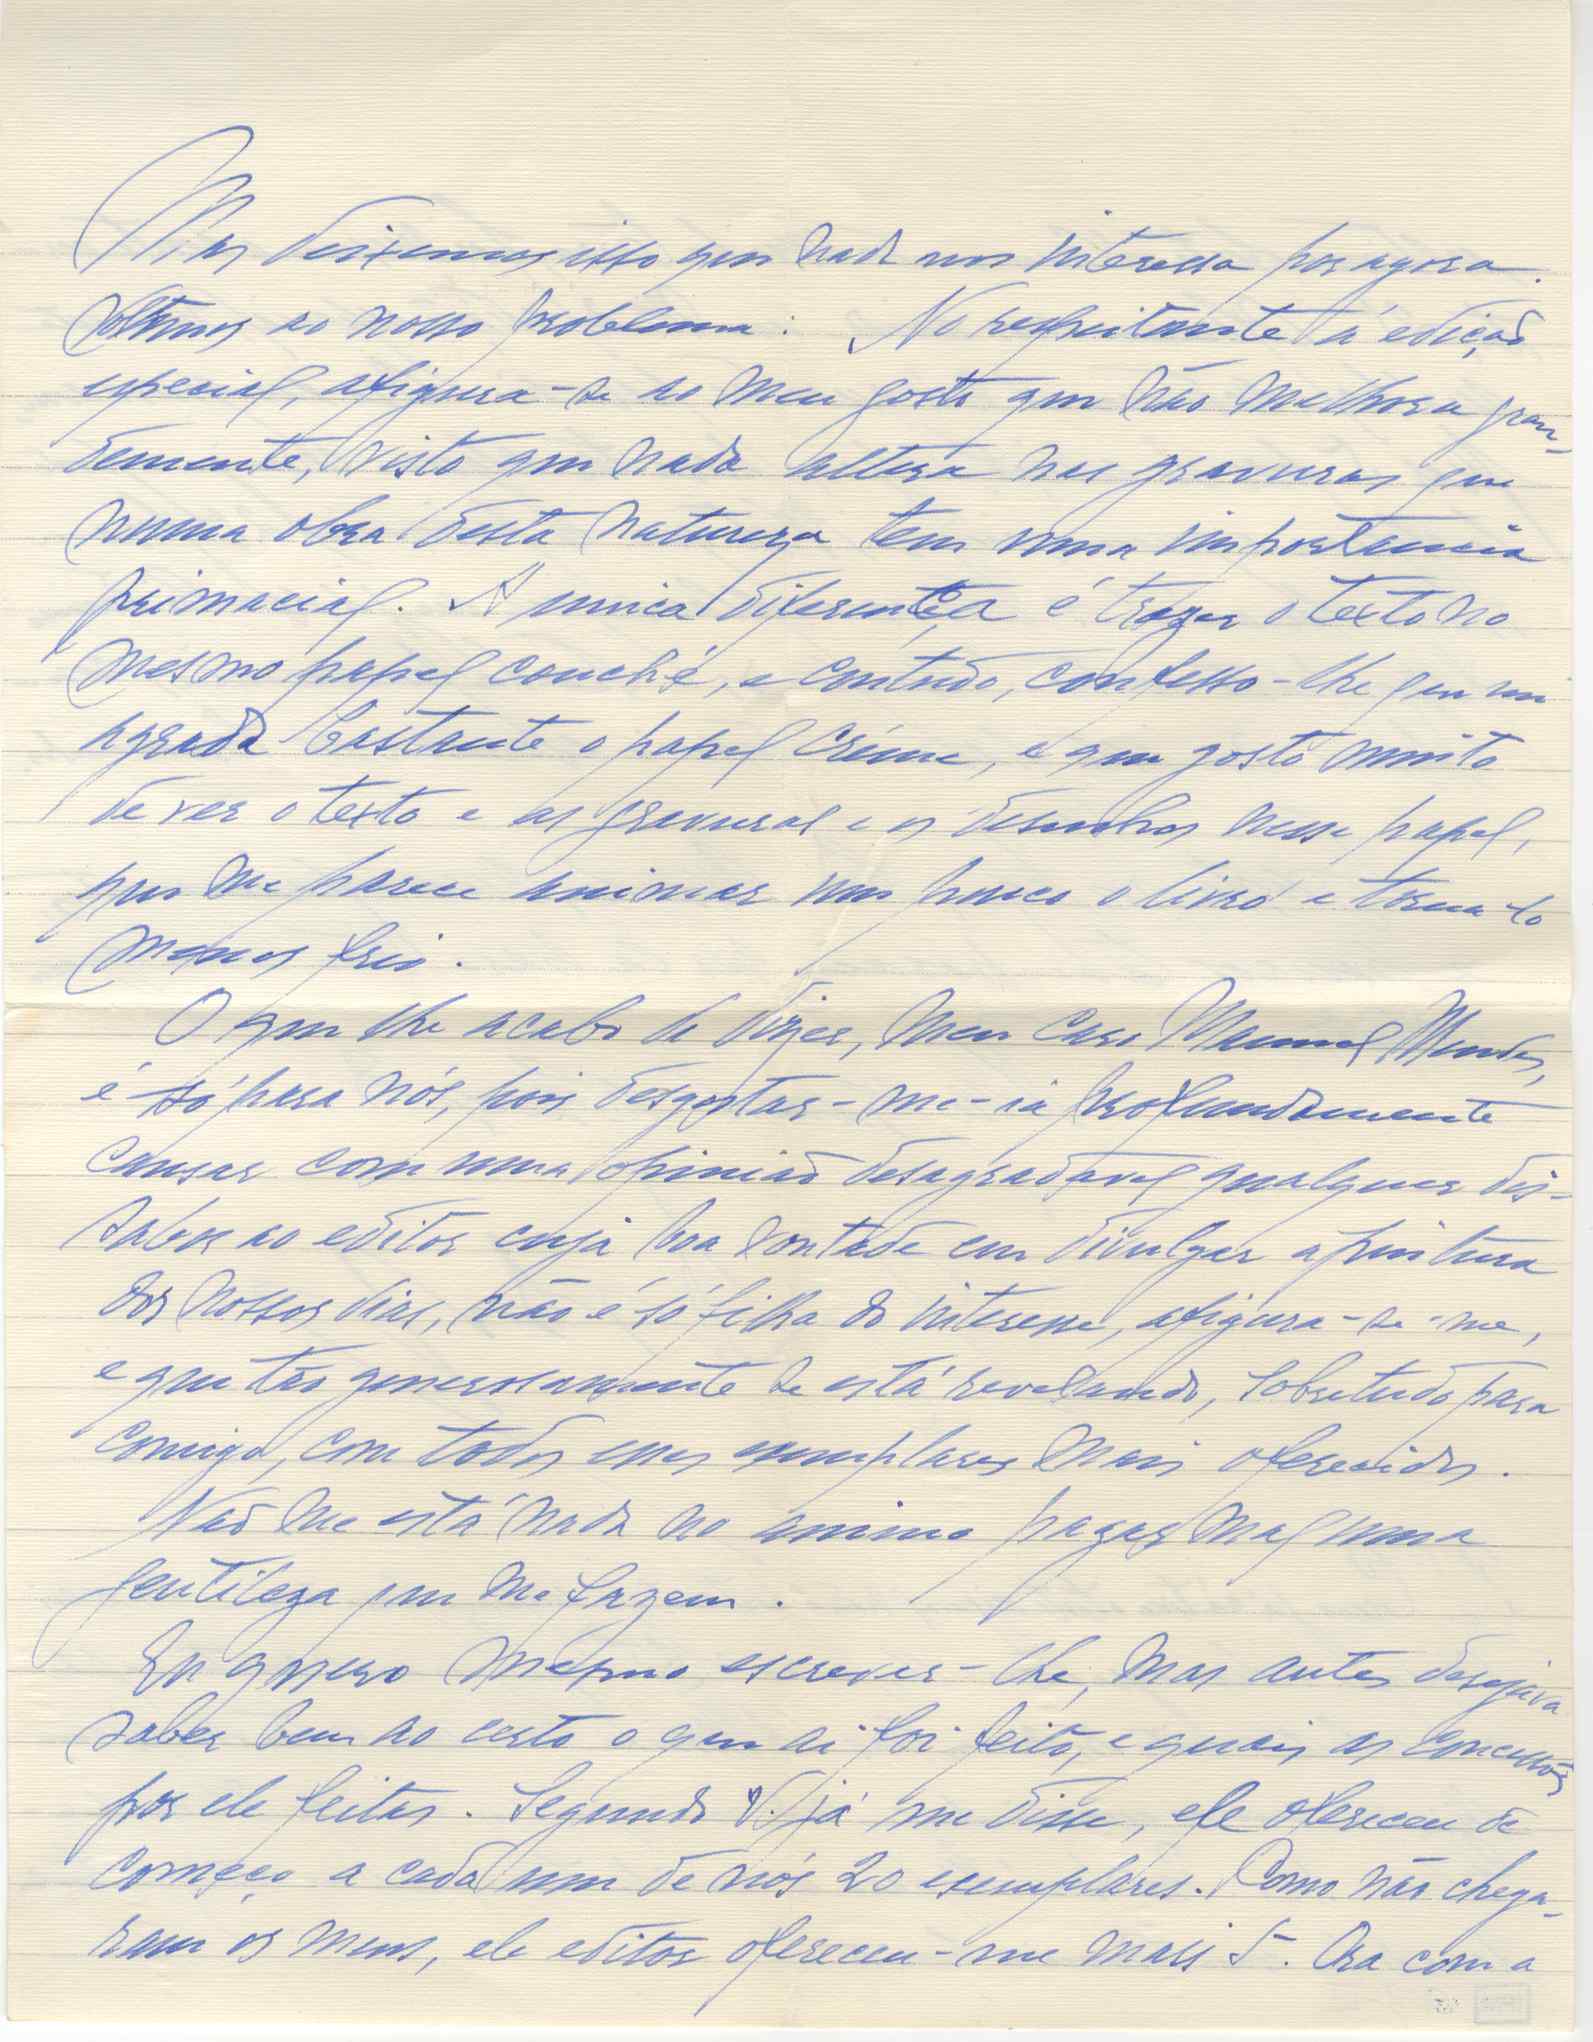 Mas deixemos isso que nada nos interessa por agora.
Voltemos ao nosso problema: No respeitante á edição
especial, afigura-se ao meu gosto que não melhora gran-
demente, visto que nada altera nas gravuras que
numa obra desta natureza tem uma importancia
primacial. A unica diferença é trazer o texto no
mesmo papel couché, e contudo, confesso-lhe que me
agrada bastante o papel crème, e que gosto muito
de ver o texto e as gravuras e os desenhos nesse papel,
que me parece animar um pouco o livro e torna-lo
menos frio.
O que lhe acabo de dizer, meu caro Manuel Mendes,
é só para nós, pois desgostar-me-ia profundamente
causar com uma opinião desagradavel qualquer dis-
sabor ao editor cuja boa vontade em divulgar a pintura
dos nossos dias, não é só filha do interesse, afigura-se-me,
e que tão generosamente se está revelando, sobretudo para
comigo, com todos esses exemplares mais oferecidos.
Não me está nada no animo pagar mal uma
gentileza que me fazem.
Eu quero mesmo escrever-lhe, mas antes desejava
saber bem ao certo o que aí foi feito, e quais as concessões
por ele feitas. Segundo V. já me disse, ele ofereceu de
começo a cada um de nós 20 exemplares. Como não chega-
ram os meus, ele editor ofereceu-me mais 5. Ora com a